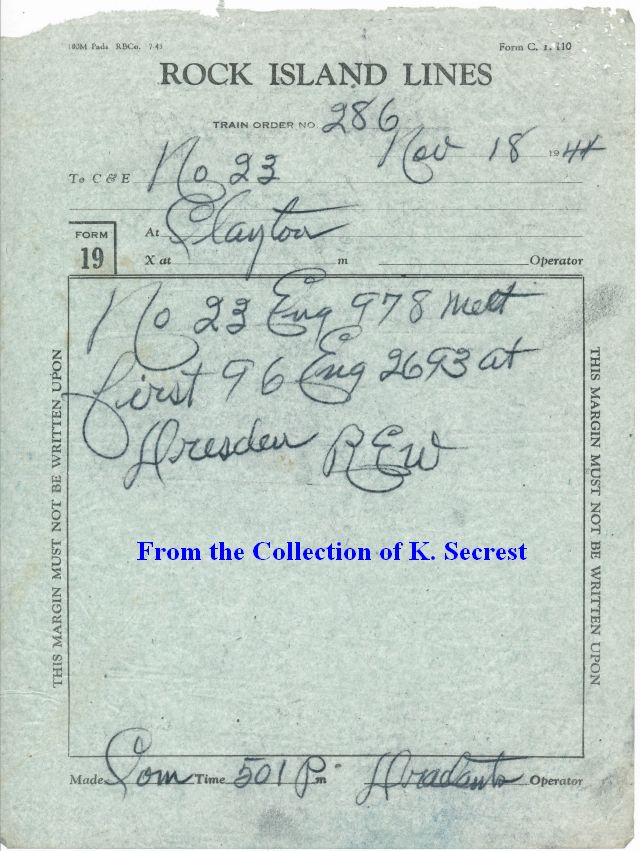 100M Pads RBCo. 7-43 Form C. T. 110
ROCK ISLAND LINES
TRAIN ORDER NO. 286
Nov 18 1944
To C & E No 23
FORM 19
At Clayton
X at m Operator
No 23 Eng 978 meet
first 96 Eng 2693 at
Dresden REW
THIS MARGIN MUST NOT BE WRITTEN UPON
THIS MARGIN MUST NOT BE WRITTEN UPON
From the Collection of K. Secrest
Made Com Time 501 P m Operator